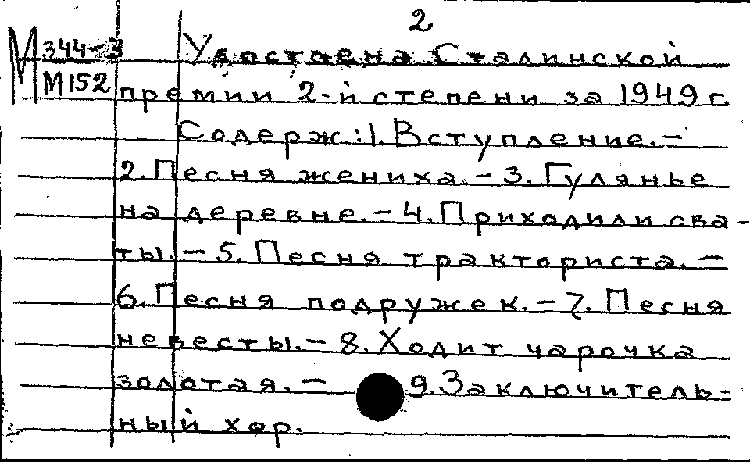 2
М 344-3 Удостоена Сталинской
М152 премии 2-й степени за 1949 г.
Содерж.: 1. Вступление. –
2. Песня жениха. – 3. Гулянье
на деревне. – 4. Приходили сва-
ты. – 5. Песня тракториста. –
6. Песня подружек. – 7. Песня
невесты. – 8. Ходит чарочка
золотая. – 9. Заключитель-
ный хор.